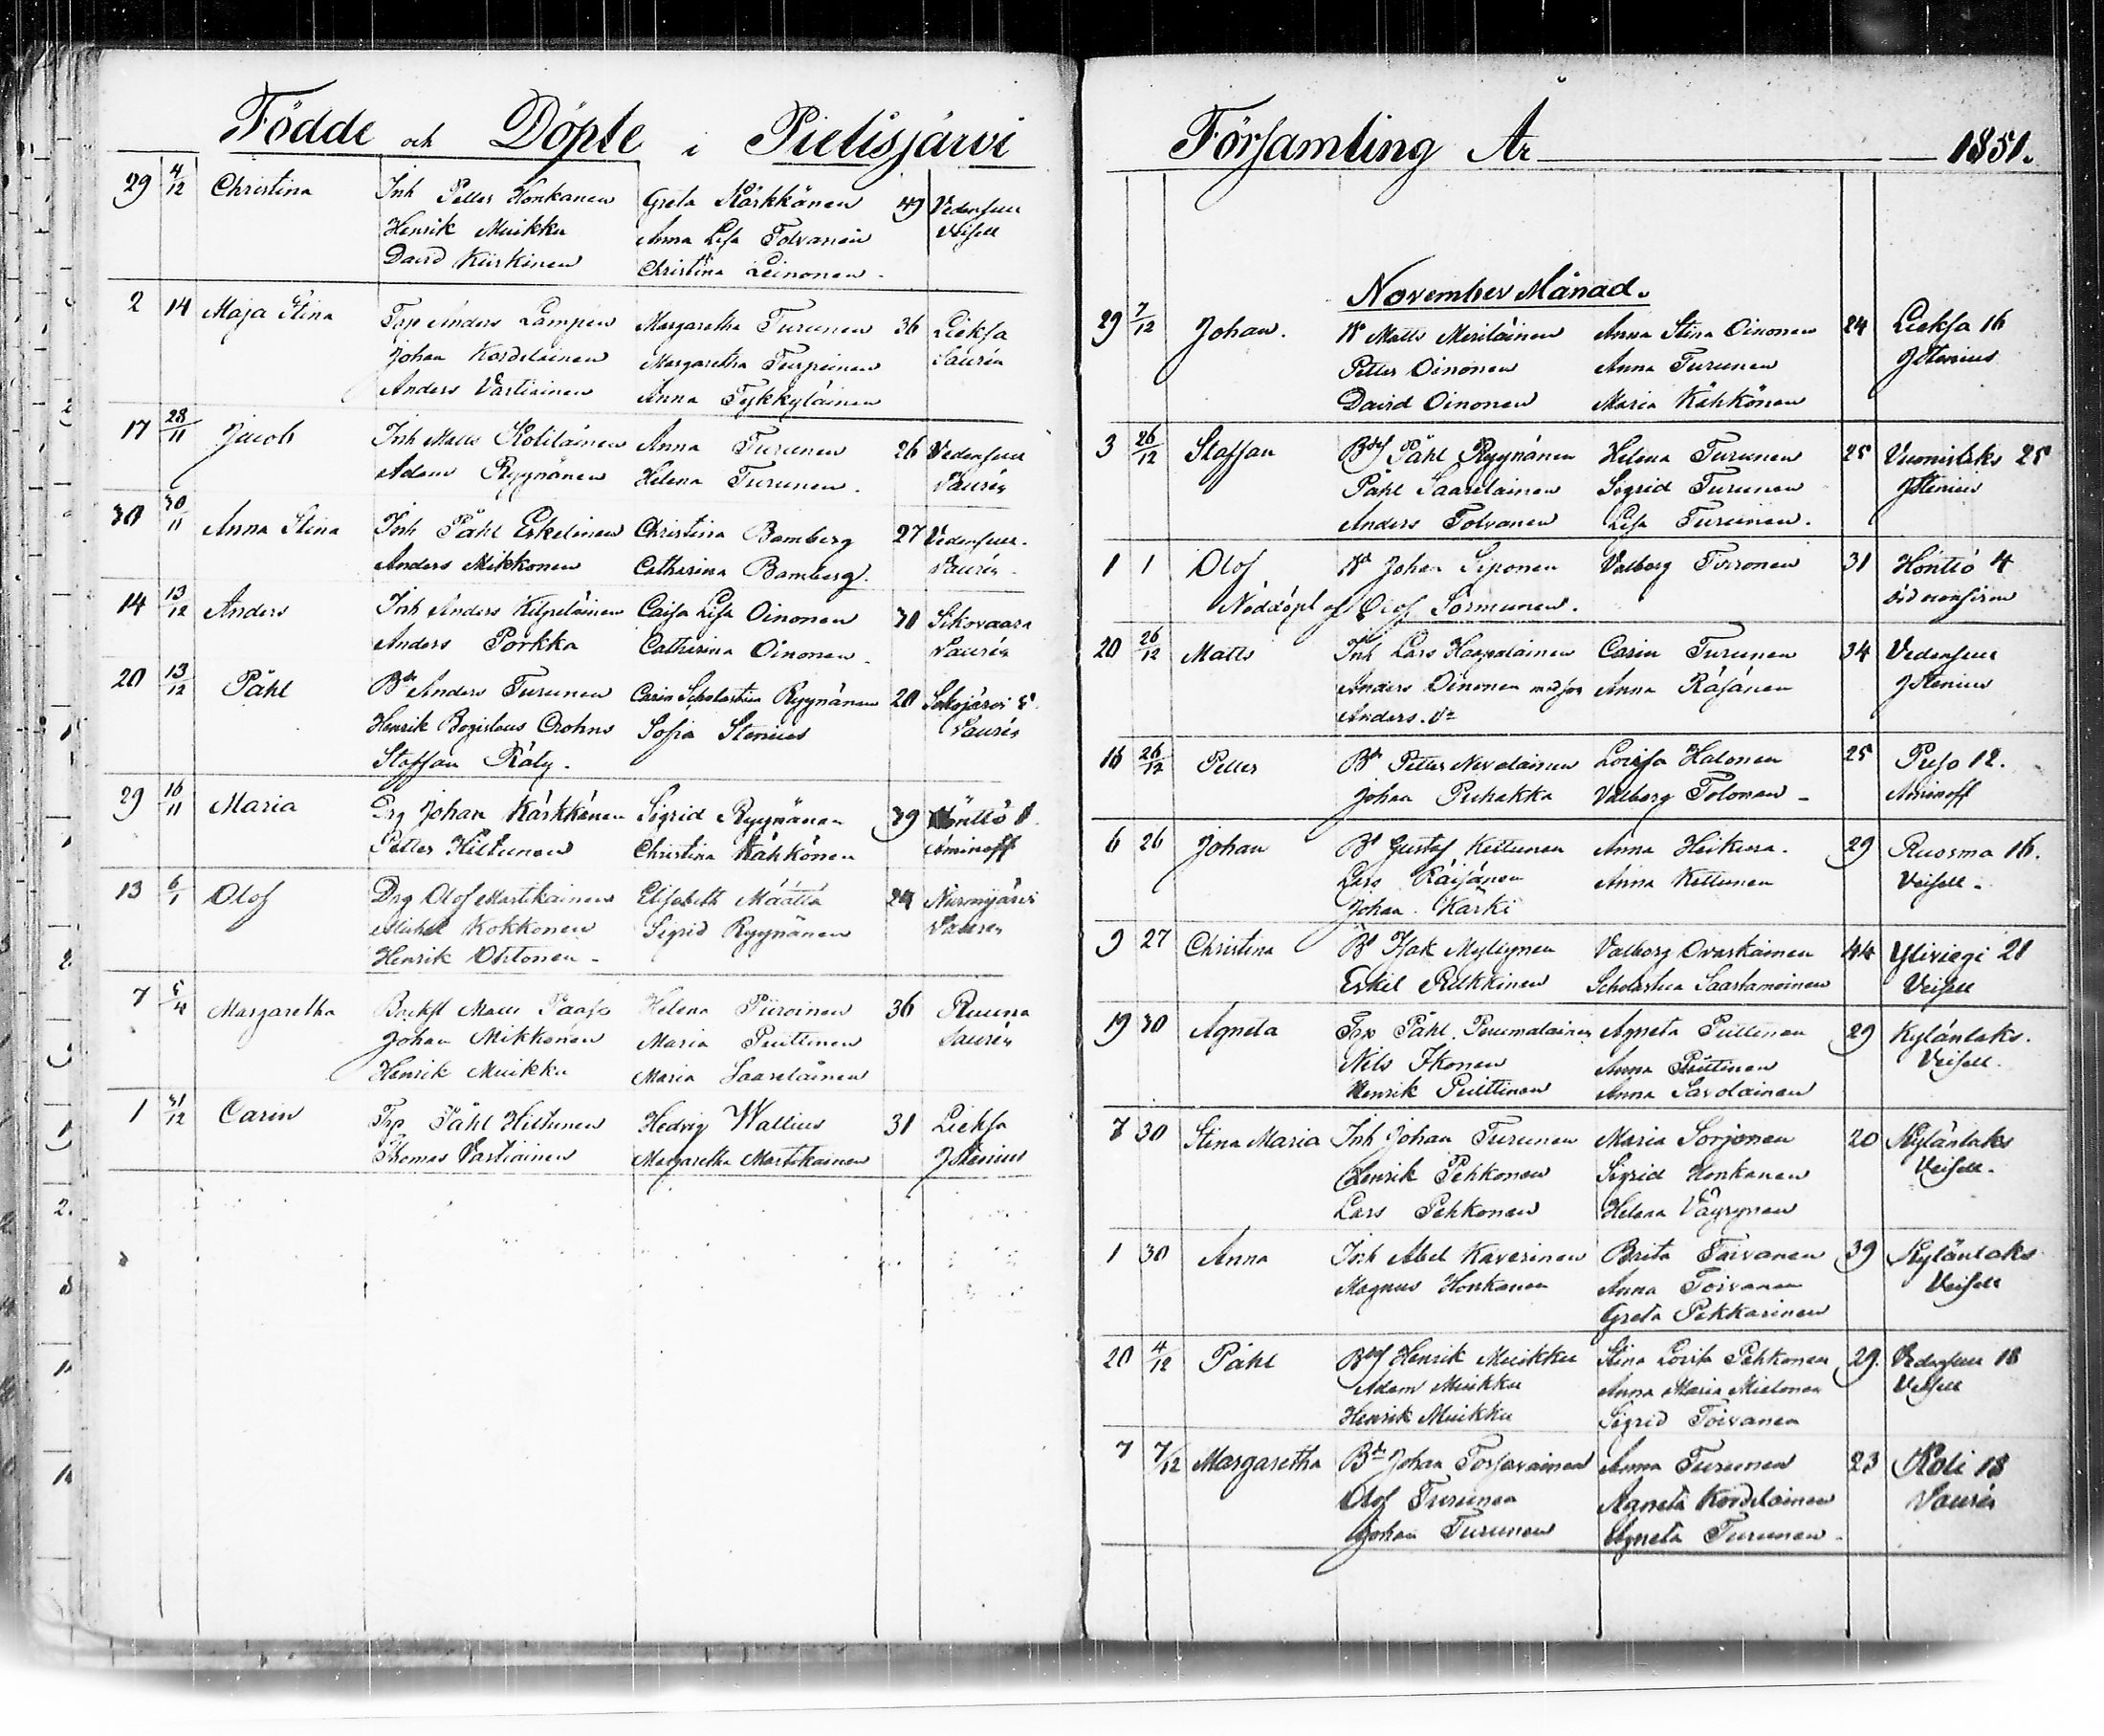 Födde och Döpte i Pielisjärvi
29 4/12 Christina Inh Petter Honkanen Greta Kärkkänen 49 Vedensuu
Henrik Muikku Anna Lisa Tolvanen Veisell
David Kiiskinen Christina Leinonen
2 14 Maja Stina Trp Anders Lampén Margaretha Turunen 36 Lieksa
Johan Kordelainen Margaretha Turpeinen Laurén
Anders Vartiainen Anna Tykkyläinen
17 28/11 Jacob Inh Matts Koliläinen Anna Turunen 26 Vedensuu
Adam Ryynänen Helena Turunen. Laurén
30 30/11 Anna Stina Inh Påhl Eskelinen Christina Bamberg 27 Vedensuu.
Anders Mikkonen Catharina Bamberg. Laurén
14 13/12 Anders Inh Anders Kilpeläinen Caisa Lisa Oinonen 30 Sikovaara
Anders Porkka Catharina Oinonen. Laurén
20 13/12 Påhl Bd Anders Turunen Carin Scholastica Ryynänen 20
Henrik Bogislaus Crohns Sofia Stenius Laurén
Staffan Räty.
29 16/11 Maria Drg Johan Kärkkänen Sigrid Ryynänen 39 Hönttö 8
Petter Hiltunen Christina Kähkönen Aminoff
13 6/1 Olof Drg Olof Martikainen Elisabeth Määttä 24 Nurmijärvi
Michel Kokkonen Sigrid Ryynänen Laurén
Henrik Ohtonen
7 5/4 Margaretha Matts Paaso Helena Piiroinen 36 Ruuna
Johan Mikkonen Maria Puittinen Laurén
Henrik Muikku Maria Saarelainen
1 31/12 Carin Trp Påhl Hiltunen Hedvig Wallius 31 Lieksa
Thomas Vartiainen Margaretha Martikainen JStenius
Församling År 1851.
November Månad.
29 7/12 Johan. Bd Matts Meriläinen Anna Stina Oinonen 24 Lieksa 16
Petter Oinonen Anna Turunen JStenius
David Oinonen Maria Kähkönen
3 26/12 Staffan Påhl Ryynänen Helena Turunen 25 Vuonislaks 25
Påhl Saarelainen Sigrid Turunen JStenius
Anders Tolvanen Lisa Turunen.
1 1 Olof Bd Johan Siponen Valborg Tirronen 31 Hönttö 4
Nöddöpt af Olof Sormunen.
20 26/12 Matts Inh Lars Haapalainen Carin Turunen 34 Vedensuu
Anders Oinonen Anna Räsänen JStenius
Anders
18 26/12 Petter Bd Petter Nevalainen Lovisa Halonen 25 Puso 12.
Johan Puhakka Valborg Tolonen Aminoff
6 26 Johan Bd Gustaf Kettunen Anna Heikura. 29 Ruosma 16.
Lars Räisänen Anna Kettunen Veisell
Johan Karki
9 27 Christina Bd Isak Myllynen Valborg Ovaskainen 44 Yliviegi 21
Eskil Pulkkinen Scholastica Saastamoinen Veisell
19 30 Agneta Trp Påhl Perumalainen Agneta Puittinen 29 Kyläntaks.
Nils Ikonen Anna Puittinen Veisell.
Henrik Puittinen Anna Savolainen
7 30 Stina Maria Inh Johan Turunen Maria Sorjonen 20 Kyläntaks
Henrik Pehkonen Sigrid Honkanen Veisell.
Lars Pehkonen Helena Väyrynen
1 30 Anna Inh Abel Kaverinen Brita Toivanen 39 Kyläntaks
Magnus Honkanen Anna Toivanen Veisell
Greta Pekkarinen
20 4/12 Påhl Henrik Muikku Stina Lovisa Pehkonen 29. Vedensuu 18
Adam Muikku Anna Maria Mielonen Veisell
Henrik Muikku Sigrid Toivanen
7 7/12 Margaretha Bd Johan Torsavainen Anna Turunen 23 Koli 18
Olof Turunen Agneta Kordelainen Laurén
Johan Turunen Agneta Turunen